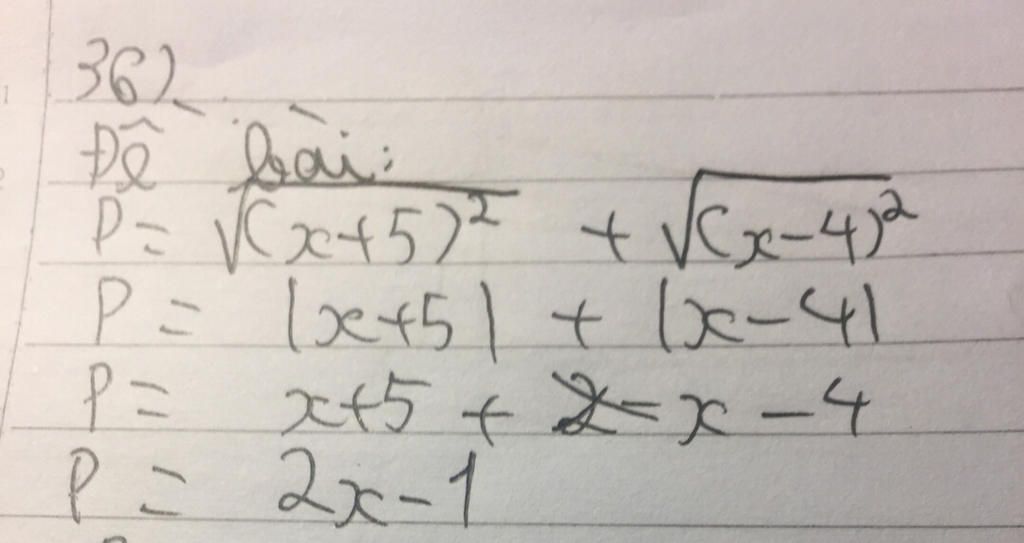 36)
Đề bài:
P = √(x+5)² + √(x-4)²
P = |x+5| + |x-4|
P = x+5 + x-4
P = 2x-1